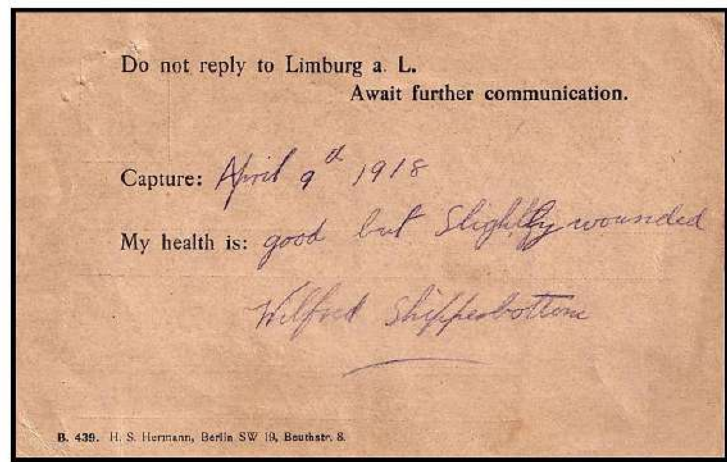 Do not reply to Limburg a. L.
Await further communication.
Capture: April 9th 1918
My health is: good but Slightly wounded
Wilfred Shipperbottom
B. 439. H. S. Hermann, Berlin SW 19, Beuthstr. 8.